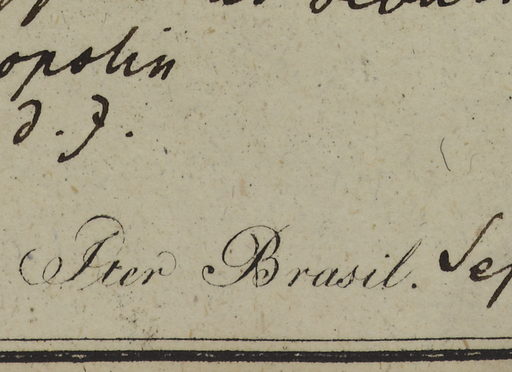 opolin
d. J.
Iter Brasil. Sep